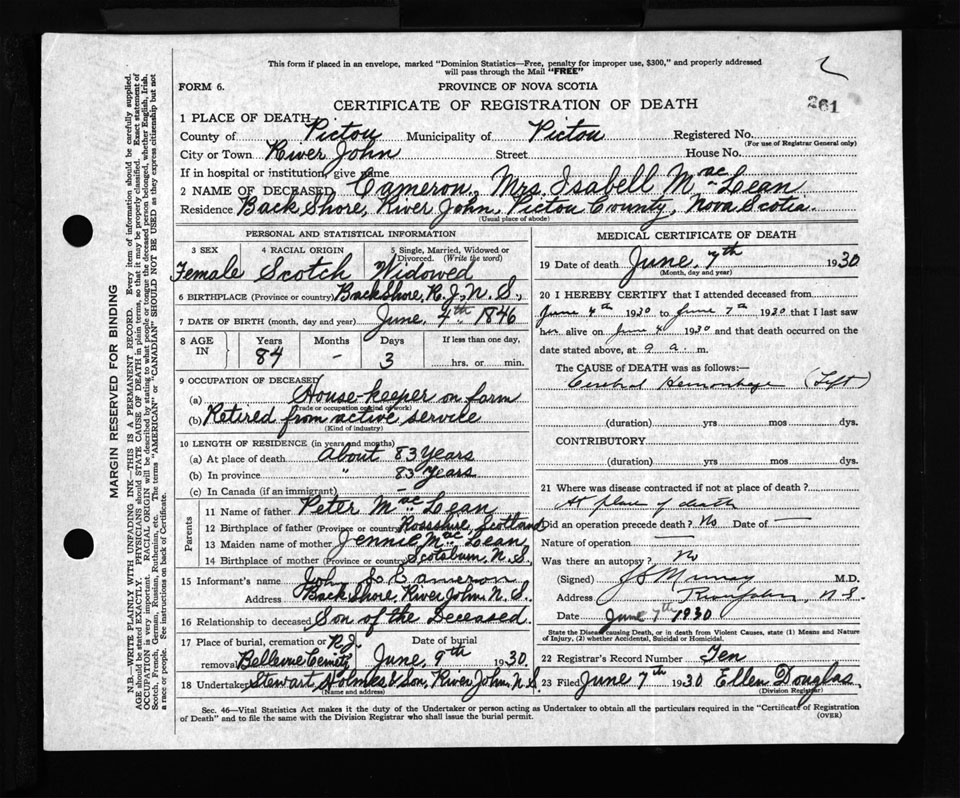 This form if placed in an envelope, marked "Dominion Statistics—Free, penalty for improper use, $300," and properly addressed
will pass through the Mail "FREE"
FORM 6.
PROVINCE OF NOVA SCOTIA
CERTIFICATE OF REGISTRATION OF DEATH
261
1 PLACE OF DEATH
County of Pictou Municipality of Pictou Registered No.
(For use of Registrar General only)
City or Town River John Street House No.
If in hospital or institution, give name
2 NAME OF DECEASED Cameron, Mrs. Isabell MacLean
Residence Back Shore, River John, Pictou County, Nova Scotia.
(Usual place of abode)
PERSONAL AND STATISTICAL INFORMATION
3 SEX 4 RACIAL ORIGIN 5 Single, Married, Widowed or
Divorced. (Write the word)
Female Scotch Widowed
6 BIRTHPLACE (Province or country) Back Shore, R. J., N. S.,
7 DATE OF BIRTH (month, day and year) June, 4th 1846
8 AGE IN Years Months Days If less than one day,
84 - 3 hrs. or min.
9 OCCUPATION OF DECEASED
(a) House-keeper on farm
(Trade or occupation or kind of work)
(b) Retired from active service
(Kind of industry)
10 LENGTH OF RESIDENCE (in years and months)
(a) At place of death About 83 Years
(b) In province " 83 Years
(c) In Canada (if an immigrant) -
Parents
11 Name of father Peter MacLean
12 Birthplace of father (Province or country) Rossshire, Scotland
13 Maiden name of mother Jennie MacLean
14 Birthplace of mother (Province or country) Scotsburn, N. S.
15 Informant's name John S. Cameron
Address Back Shore, River John, N. S.
16 Relationship to deceased Son of the Deceased.
17 Place of burial, cremation or removal R. J. Bellevue Cemetry Date of burial June, 9th 1930.
18 Undertaker Stewart Holmes & Son, River John, N. S.
(Name and address)
MEDICAL CERTIFICATE OF DEATH
19 Date of death June, 7th 1930
(Month, day and year)
20 I HEREBY CERTIFY that I attended deceased from
June 4th 1930 to June 7th 1930 that I last saw
her alive on June 4 1930 and that death occurred on the
date stated above, at 9 a. m.
The CAUSE OF DEATH was as follows:—
Cerebral Hemorrhage (Left)
(duration) yrs mos dys.
CONTRIBUTORY
(duration) yrs mos dys.
21 Where was disease contracted if not at place of death?
At place of death
Did an operation precede death? No Date of —
Nature of operation —
Was there an autopsy? No
(Signed) Murray M.D.
Address River John, N.S.
Date June 7th 1930
State the Disease causing Death, or in death from Violent Causes, state (1) Means and Nature
of Injury, (2) whether Accidental, Suicidal or Homicidal.
22 Registrar's Record Number Ten
23 Filed June 7th 1930 Ellen Douglas,
(Division Registrar)
Sec. 46—Vital Statistics Act makes it the duty of the Undertaker or person acting as Undertaker to obtain all the particulars required in the "Certificate of Registration
of Death" and to file the same with the Division Registrar who shall issue the burial permit.
(OVER)
MARGIN RESERVED FOR BINDING
N.B.—WRITE PLAINLY WITH UNFADING INK—THIS IS A PERMANENT RECORD. Every item of information should be carefully supplied.
AGE should be stated EXACTLY. PHYSICIANS should STATE CAUSE OF DEATH in plain terms, so that it may be properly classified. Exact statement of
OCCUPATION is very important. RACIAL ORIGIN will be described by stating to what people or tongue the deceased person belonged, whether English, Irish,
Scotch, French, German, Russian, Ruthenian, etc. The terms "AMERICAN" or "CANADIAN" SHOULD NOT BE USED as they express citizenship but not
a race or people. See instructions on back of Certificate.